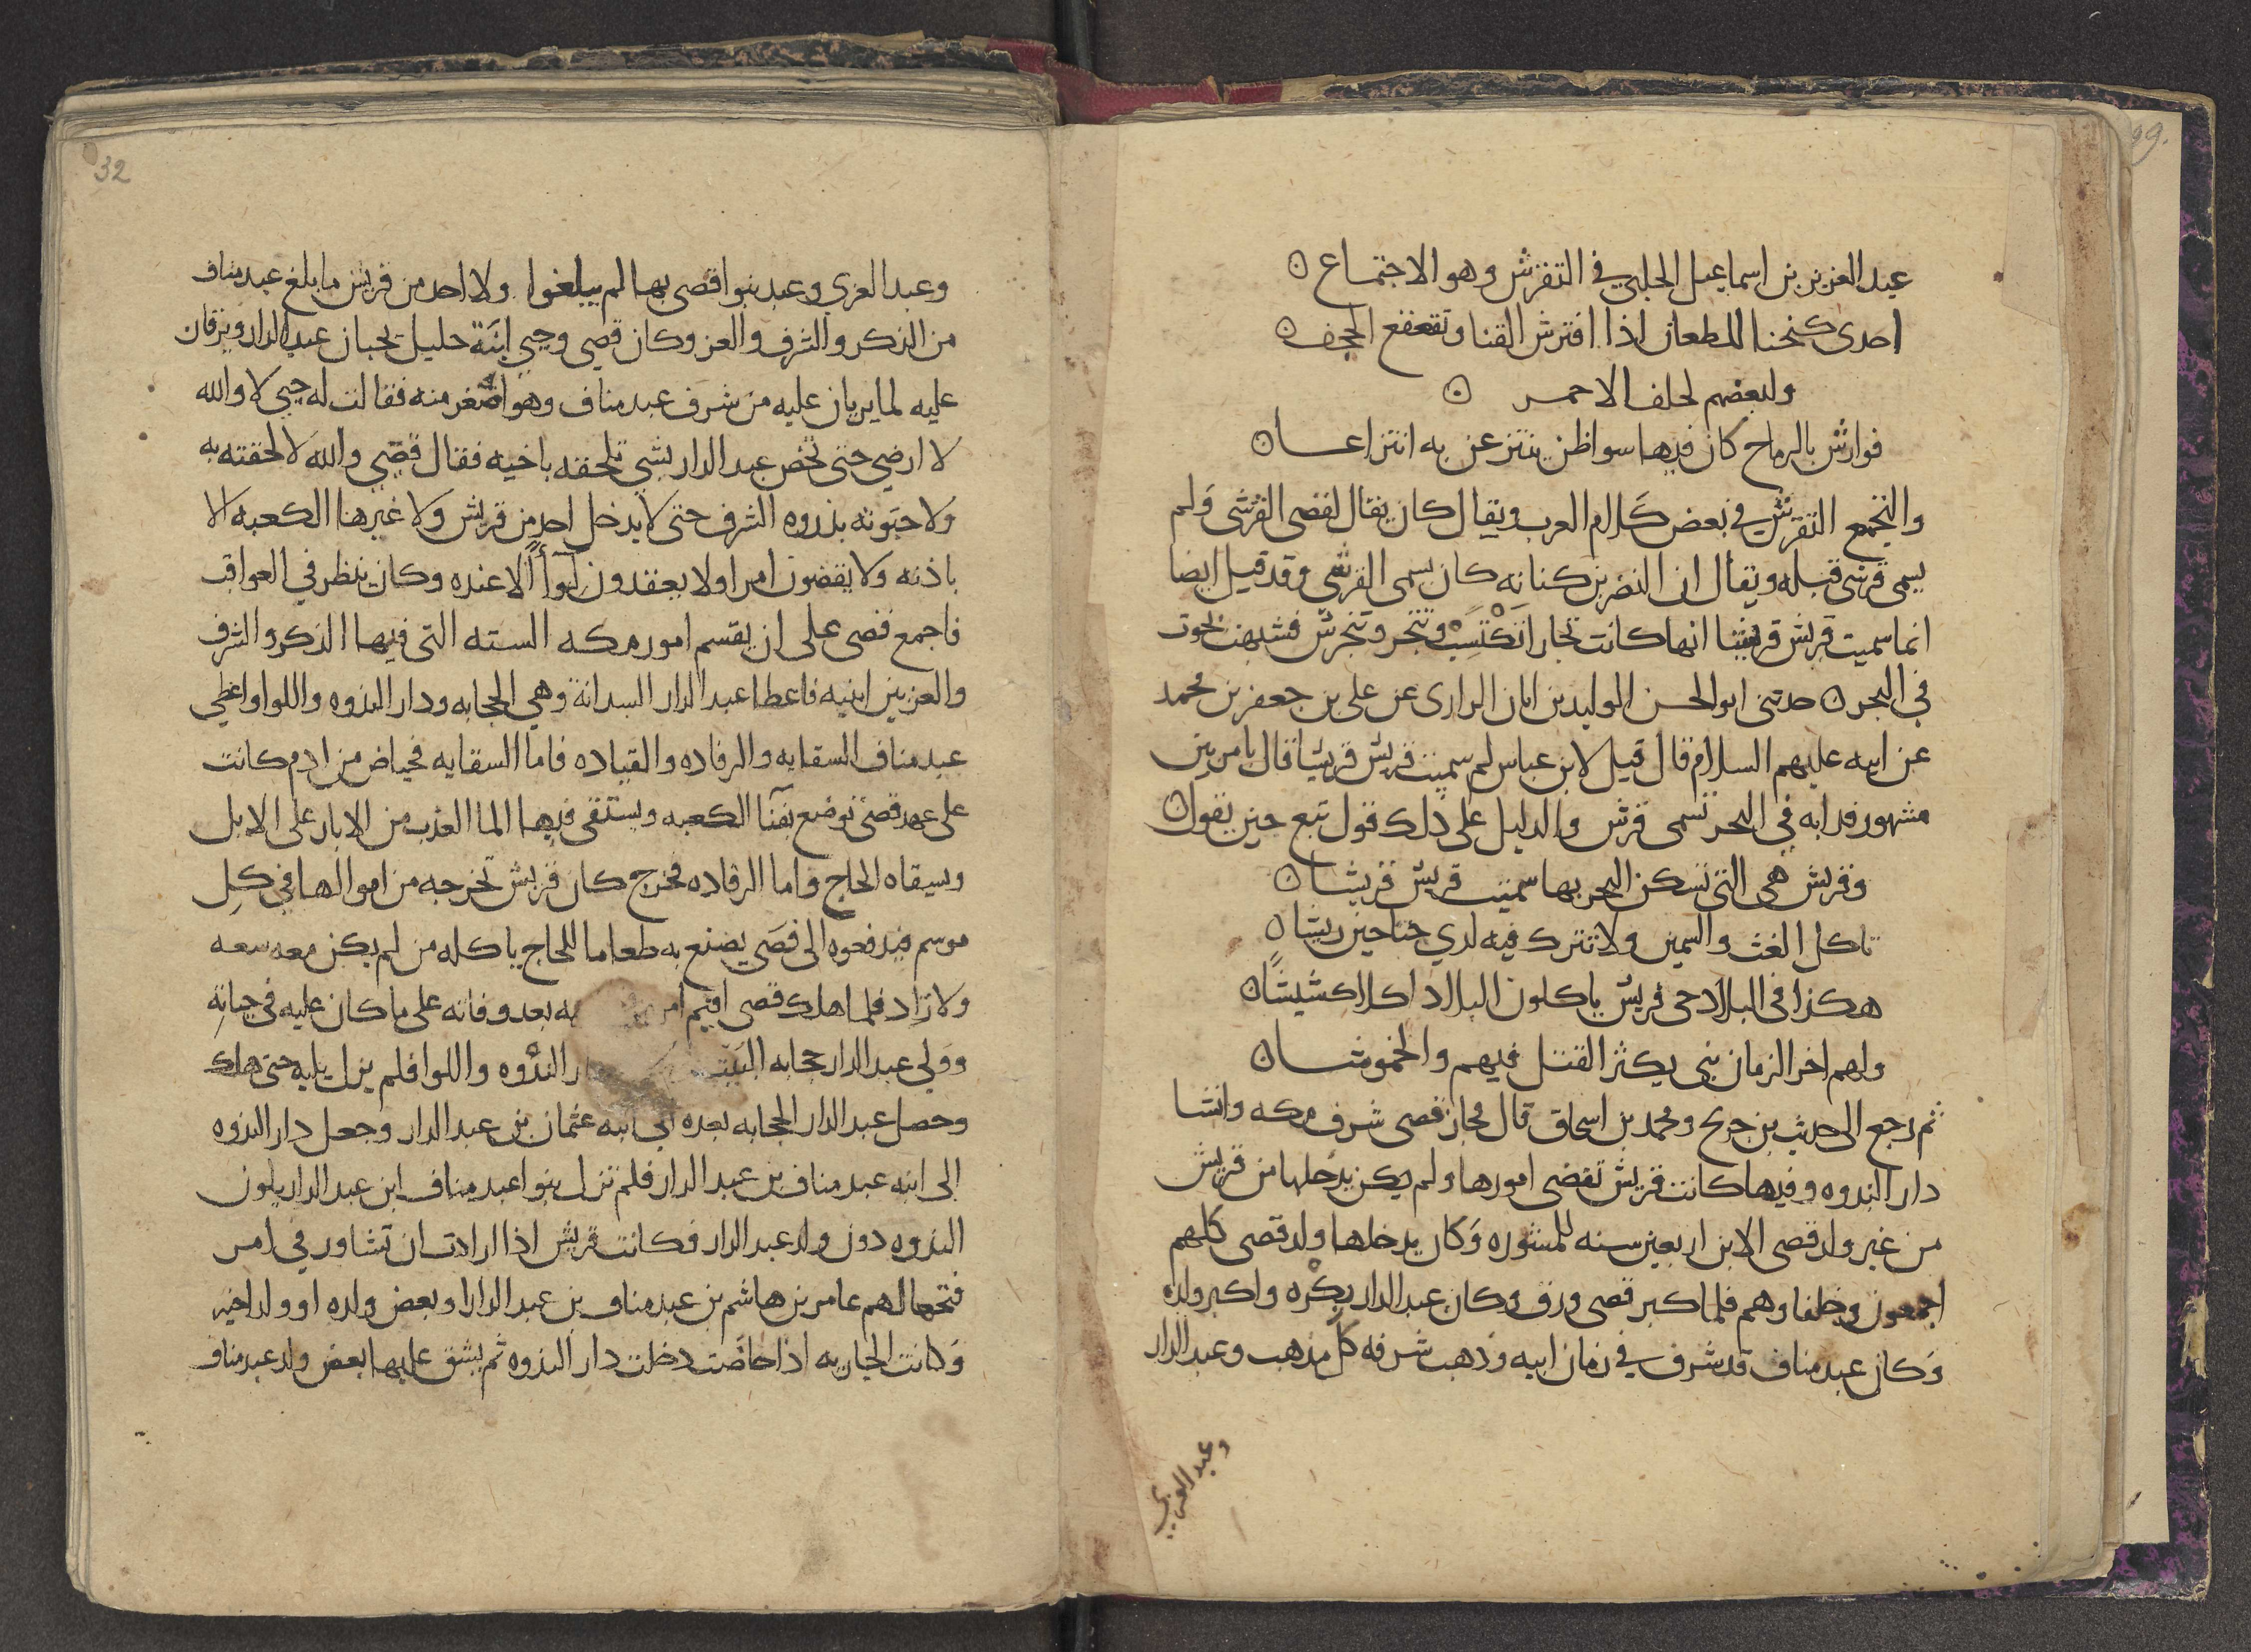 عبد العزيز بن اسماعيل الحلبي في التقرش وهو الاجتماع ۞
احدى كنحنا للطعان اذا افترش القنا وتقعقع الحجف ۞
ولبعضهم لحلف الاحمر ۞
قوارش بالرماح كان فيها سواظن ينتزعن به انتزاعا ۞
والتجمع التقرش في بعض كلام العرب ويقال كان يقال لقصى القرشى ولم
يسمى قرشى قبله ويقال ان النضر بن كنانه كان يسمى القرشى وقد قيل ايضا
انما سميت قريش قريشا انها كانت تجارا تكتسب وتتجر وتتجرش فشبهت بحوت
في البحر ۞ حدثنى ابو الحسن الوليد بن ابان الرازى عن على بن جعفر بن محمد
عن ابيه عليهم السلام قال قيل لابن عباس لم سميت قريش قريشا قال بامر بين
مشهور فدابه في البحر تسمى قرش والدليل على ذلك قول تبع حين يقول ۞
وقريش هى التى تسكن البحر بها سميت قريش قريشا ۞
تاكل الغث والسمين ولا تترك فيه لدي جناحين ريشا ۞
هكذا فى البلاد حى قريش ياكلون البلاد اكلا كشيشا ۞
ولهم اخر الزمان نبى يكثر القتل فيهم والخموشا ۞
ثم رجع الى حديث بن جريج ومحمد بن اسحاق قال فحاز قصى شرف مكه وانشا
دار الندوه وفيها كانت قريش تقضى امورها ولم يكن يدخلها من قريش
من غير ولد قصى الا بن اربعين سنه للمشوره وكان يدخلها ولد قصى كلهم
اجمعون وحلفاوهم فلما كبر قصى ورق وكان عبد الدار بكره واكبر ولده
وكان عبد مناف قد شرف في زمان ابيه وذهب شرفه كل مذهب وعبد الدار
وعبد العزى
32
وعبد العزى وعبد بنوا قصى بها لم يبلغوا ولا احد من قريش ما بلغ عبد مناف
من الذكر والشرف والعز وكان قصي وحبي ابنة حليل يحبان عبد الدار ويرقان
عليه لما يريان عليه من شرف عبد مناف وهو اصغر منه فقالت له حبي لا والله
لا ارضي حتى تخص عبد الدار بشي تلحقه باخيه فقال قصي والله لالحقته به
ولاحبوته بذروه الشرف حتى لا يدخل احد من قريش ولا غيرها الكعبه الا
باذنه ولا يقضون امرا ولا يعقدون لوآ الا عنده وكان ينظر في العواقب
فاجمع قصى على ان يقسم امور مكه السته التى فيها الذكر والشرف
والعز بين ابنيه فاعطا عبد الدار السدانة وهي الحجابه ودار الندوه واللوا واعطي
عبد مناف السقايه والرفاده والقياده فاما السقايه فحياض من ادم كانت
على عهد قصى توضع بفنا الكعبه ويستقى فيها الما العذب من الابار على الابل
ويسقاه الحاج واما الرفاده فخرج كان قريش تخرجه من اموالها في كل
موسم فيدفعوه الى قصي يصنع به طعاما للحاج ياكله من لم يكن معه سعه
ولا زاد فلما هلك قصى اقيم امر به بعد وفاته على ما كان عليه في حياته
وولي عبد الدار حجابه البيت الندوه واللوا فلم يزل يليه حتى هلك
وحصل عبد الدار الحجابه بعده الى ابنه عثمان بن عبد الدار وجعل دار الندوه
الى ابنه عبد مناف بن عبد الدار فلم تزل بنوا عبد مناف ابن عبد الدار يلون
الندوه دون ولد عبد الدار فكانت قريش اذا ارادت ان تشاور في امر
فتحها لهم عامر بن هاشم بن عبد مناف بن عبد الدار او بعض ولده او ولد اخيه
وكانت الجاريه اذا حاضت دخلت دار الندوه ثم يشق عليها بعض ولد عبد مناف